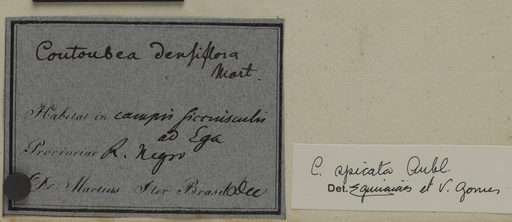 Coutoubea densiflora
Mart.
Habitat in campis siccuisculis
ad Ega
Provinciae R. Negro
De Martius Iter Brasil. Dec
C. spicata Aubl.
Det. et V. Gomes